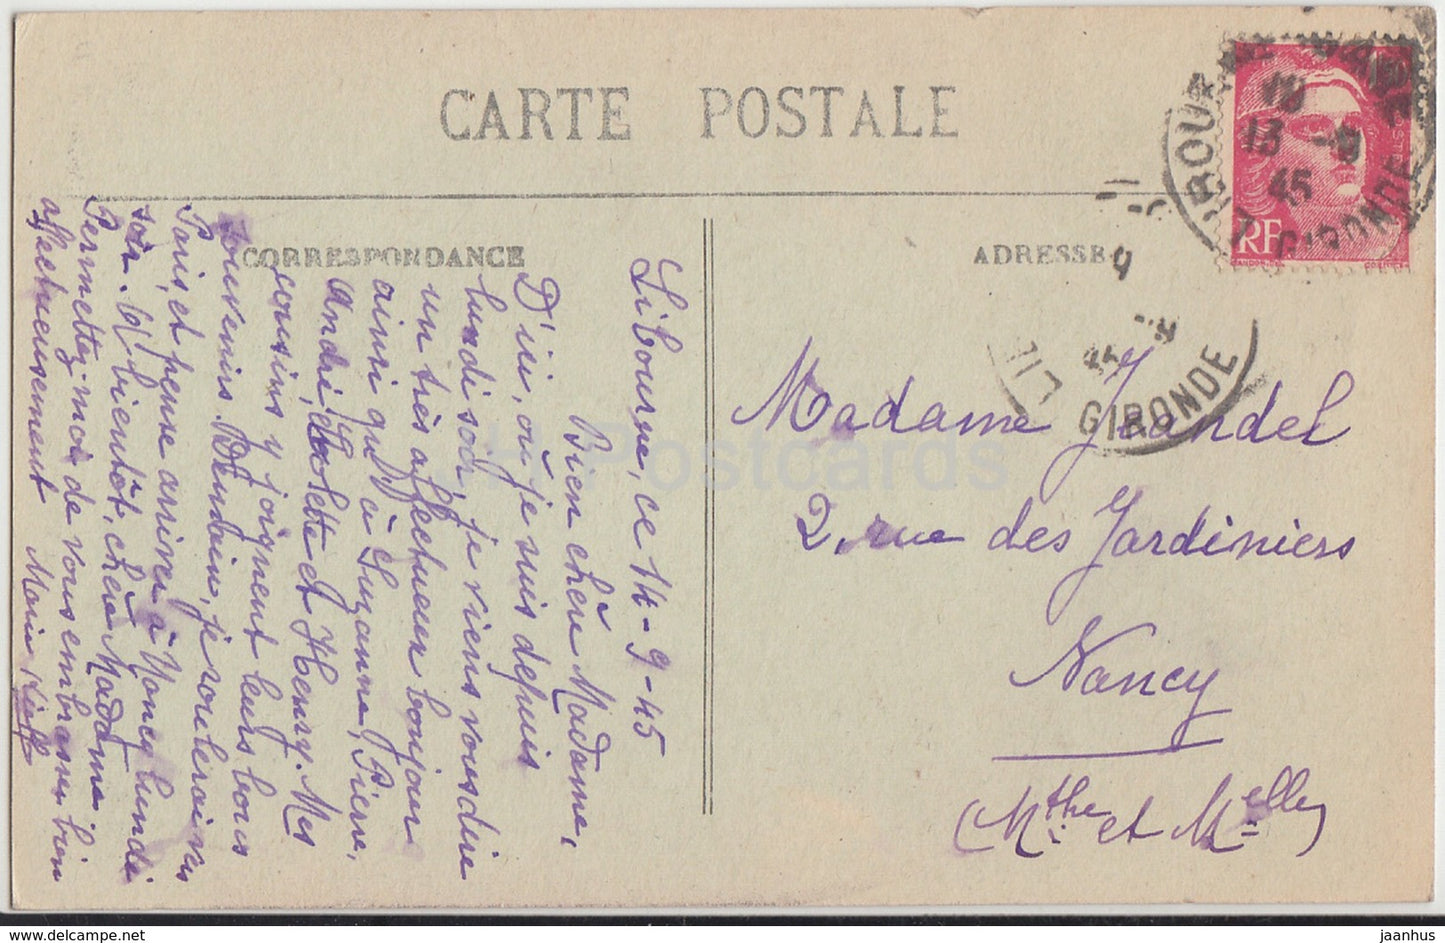 CARTE POSTALE
CORRESPONDANCE
ADRESSE
Libourne, ce 14-9-45
Bien chère Madame,
D'ici, où je suis depuis
lundi soir, je viens vous dire
un très affectueux bonjour
ainsi qu'à Suzanne, Pierre,
André, Colette et Henry. Mes
cousins y joignent leurs bons
souvenirs. Demain, je
Paris, et pense arriver à Nancy lundi
soir. A bientôt, chère Madame
Permettez moi de vous embrasser bien
affectueusement
Madame Jeandel
2, rue des Jardiniers
Nancy
(Mthe et Melle)
LIBOURNE GIRONDE
18
13 -9
45
RF
LIB
GIRONDE
JH Postcards
jaanhus - www.delcampe.net